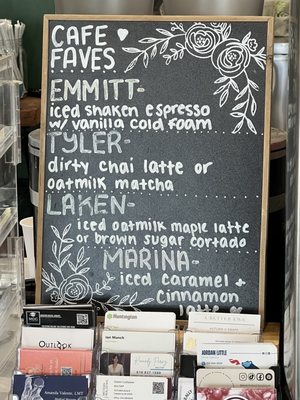 CAFE
FAVES
EMMITT-
iced shaken espresso
w/ vanilla cold foam
TYLER-
dirty chai latte or
oatmilk matcha
LAKEN-
iced oatmilk maple latte
or brown sugar cortado
MARINA-
iced caramel +
cinnamon
latte
Huntington
OUTLOOK
Ian Munch
JORDAN LITTLE
Amanda Valente, LMT